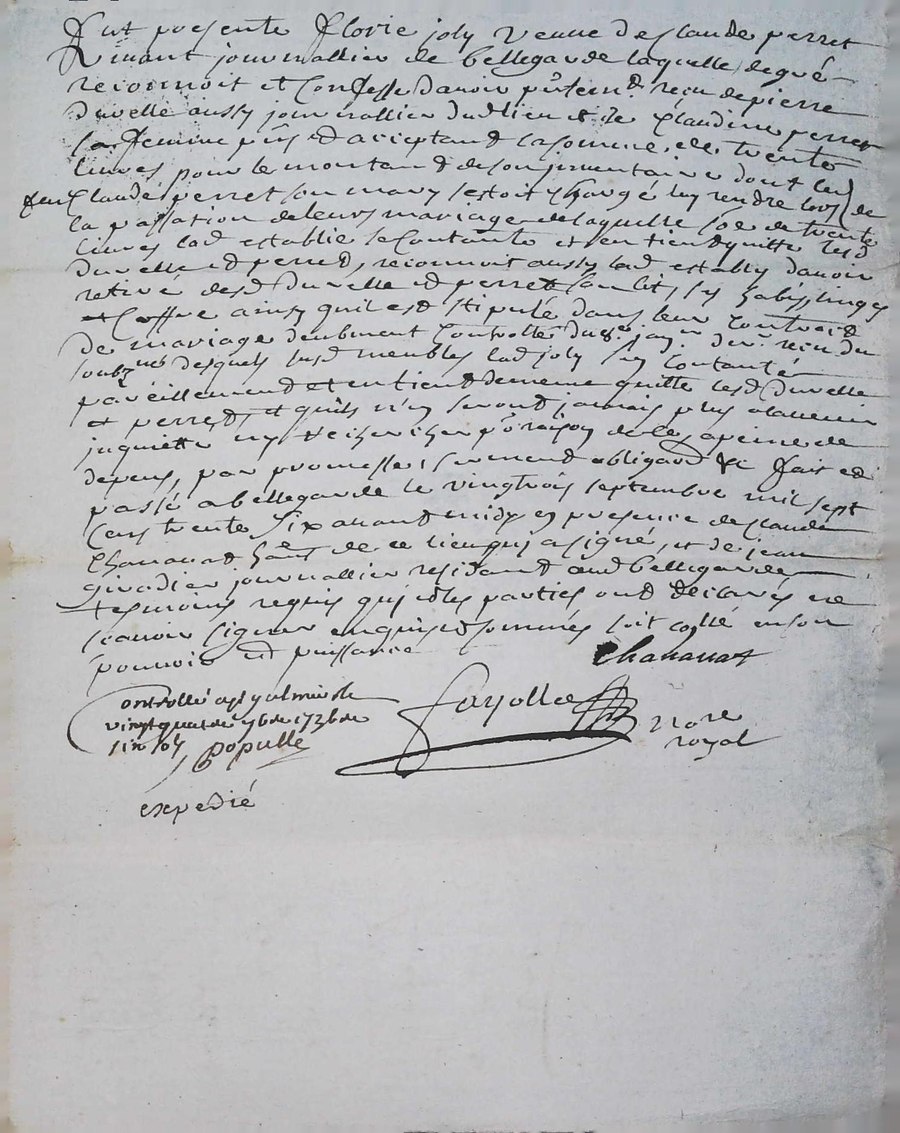 fut presente florie joly veuve de claude perret
vivant journallier de bellegarde laquelle de gré
reconnoit et confesse d'avoir presentemt reçu de pierre
duvelle aussy journallier dud lieu et de claudine perret
sa femme pnts et acceptant la somme de trente
livres pour le montant de son jnventaire dont led
feu claude perret son mary sestoit chargé luy rendre lors de
la passation de leurs mariage de laquelle soe de trente
livres lad establie se contante et en tient quitte lesd
duvelle et perret, reconnoit aussy lad establie d'avoir
retiré desd duvelle et perret son lit, ses habis, linges
et coffre ainsy quil est stipulé dans leur contract
de mariage deubment controllé du janer dernr reçu du
soubzné desquels susd meubles lad joly se contante
pareillement et en tient de meme quitte lesd duvelle
et perret, et quils n'en seront jamais plus a lavenir
jnquiettés ny recherchés pr raison de ce, a peine de
depens, par promesse, serment obligaon &c fait et
passé a bellegarde le vingtrois septembre mil sept
cens trente six avant midy en presence de claude
chanavat de ce lieu qui a signé, et de jean
givadier journallier residant aud bellegarde
tesmoins requis qui et les parties ont declarés ne
scavoir signer enquis et sommés soit collé en son
pouvoir et puissance
Chanavat
Controllé a st galmier le
vingt quatre 7bre 1736 de
six sols
Populle
fayolle
nore
royal
expedié